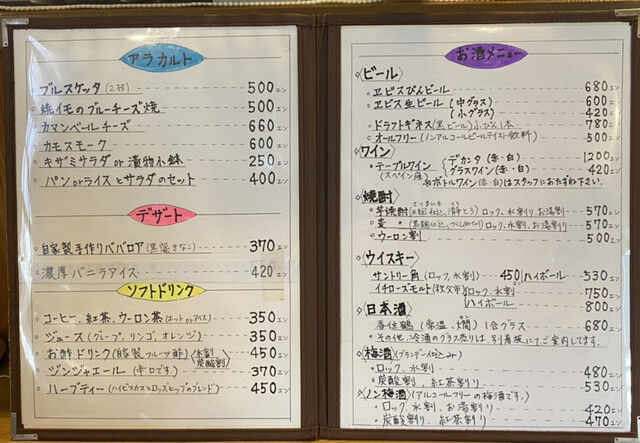 アラカルト
ブルスケッタ(2枚) 500エン
焼イモのブルーチーズ焼 500エン
カマンベールチーズ 660エン
カモスモーク 600エン
キザミサラダor漬物小鉢 250エン
パンorライスとサラダのセット 400エン
デザート
自家製手作りババロア(黒蜜きなこ) 370エン
濃厚バニラアイス 420エン
ソフトドリンク
コーヒー、紅茶、ウーロン茶(ホットorアイス) 350エン
ジュース(グレープ、リンゴ、オレンジ) 350エン
お酢ドリンク(自製フルーツ酢)〈水割 炭酸割〉 450エン
ジンジャエール(辛口です) 370エン
ハーブティー(ハイビスカスとローズヒップのブレンド) 450エン
お酒メニュー
〈ビール〉
ヱビスびんビール 680エン
ヱビス生ビール (中グラス) 620エン
(小グラス) 420エン
ドラフトギネス(黒ビール)小びん1本 780エン
オールフリー(ノンアルコールビールテイスト飲料) 500エン
〈ワイン〉
テーブルワイン(スペイン産) デカンタ(赤・白) 1200エン
グラスワイン(赤・白) 420エン
※ボトルワイン(赤・白)はスタッフにおたずね下さい。
〈焼酎〉
芋焼酎 ロック、水割り、お湯割 570エン
麦〃 ロック、水割り、お湯割り 570エン
ウーロン割 500エン
〈ウイスキー〉
サントリー角(ロック、水割) 450エン ハイボール 530エン
イチローズモルト(秩父市) ロック、水割 750エン
ハイボール 800エン
〈日本酒〉
香住鶴(常温、燗)1合グラス 680エン
その他、冷酒のグラス売りは、別看板にてご案内してます。
〈梅酒〉(ブランデー仕込み)
ロック、水割 480エン
炭酸割 紅茶割り 530エン
〈ノン梅酒〉(アルコールフリーの梅酒です。)
ロック、水割、お湯割り 420エン
炭酸割り、紅茶割り 470エン